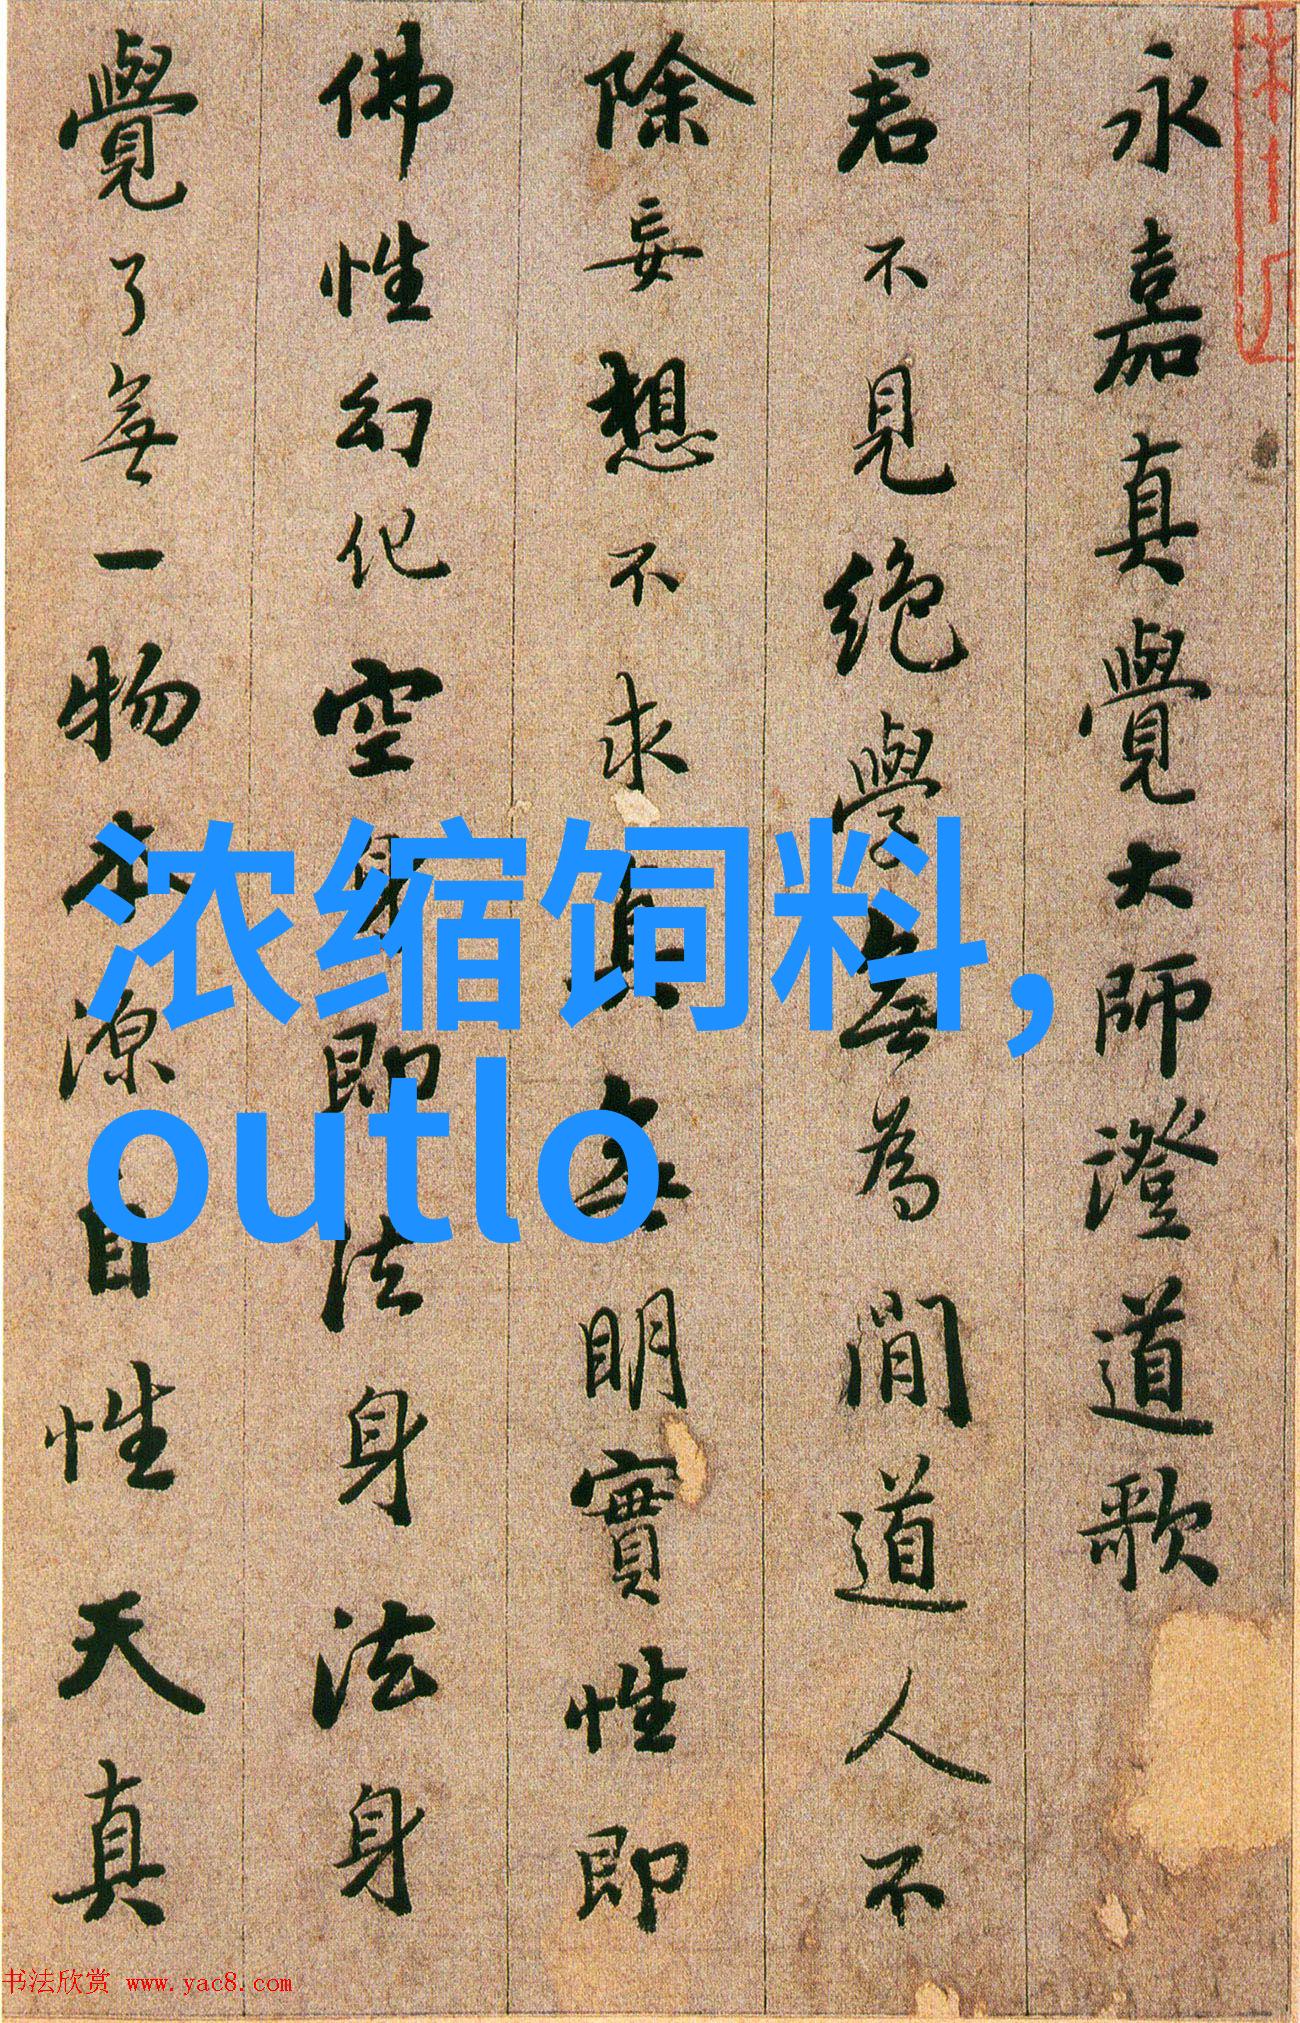 永嘉真覺大師澄道歌
君不見绝學無為閒道人不
除妄想不求真無明實性即
佛性幻化空身即法身法身
覺了無一物本源自性天真
浓缩饲料,
outlo
书法欣赏 www.yac8.com